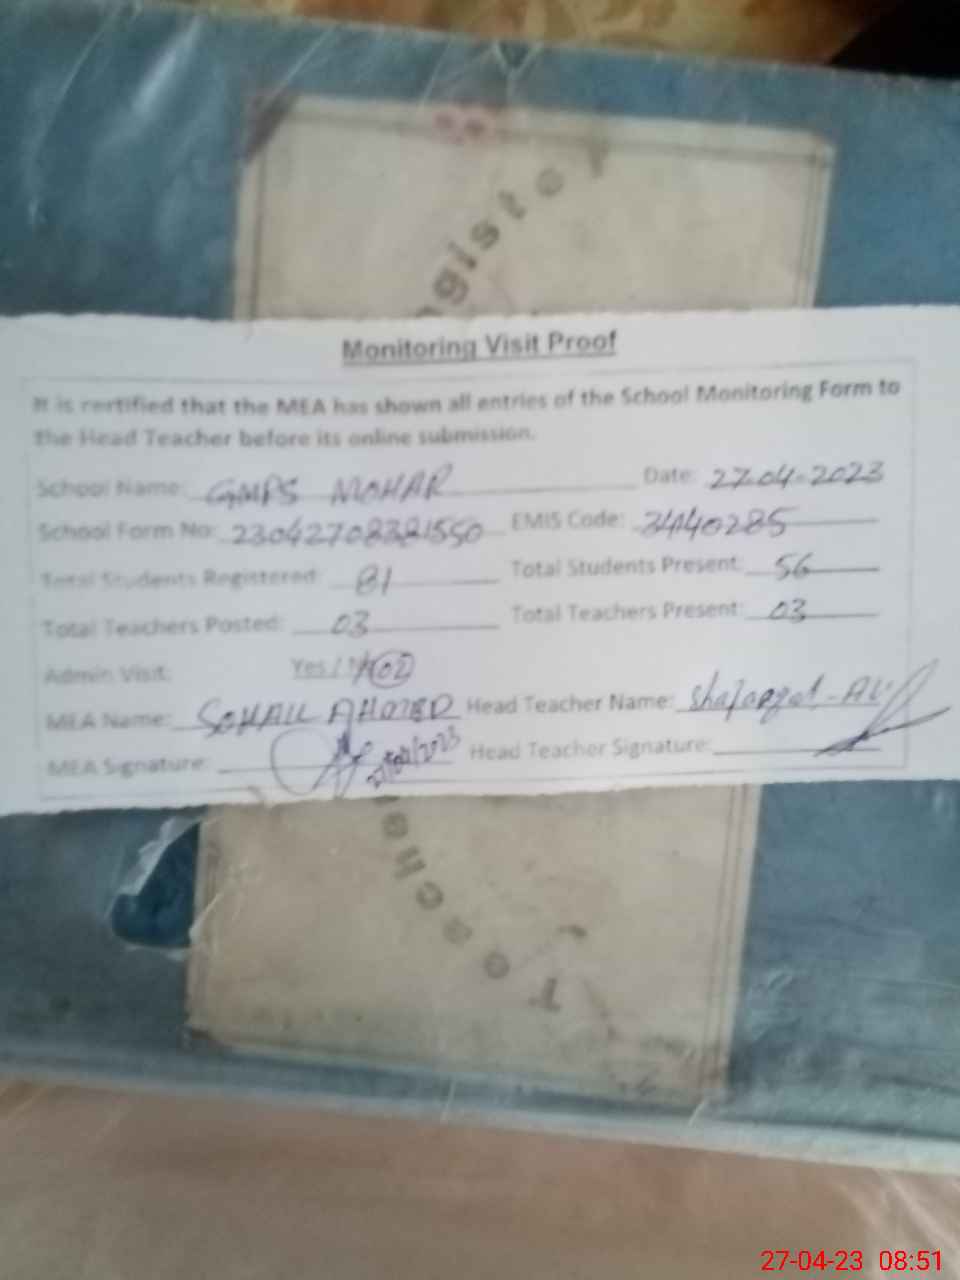 Register
Monitoring Visit Proof
It is certified that the MEA has shown all entries of the School Monitoring Form to
the Head Teacher before its online submission.
School Name: GMPS MOHAR Date: 27-04-2023
School Form No: 23042708381550 EMIS Code: 34140285
Total Students Registered: 81 Total Students Present: 56
Total Teachers Posted: 03 Total Teachers Present: 03
Admin Visit: Yes / No 02
MEA Name: SOHAIL AHMED Head Teacher Name: ALI
MEA Signature: 27/04/2023 Head Teacher Signature:
Teacher
27-04-23 08:51